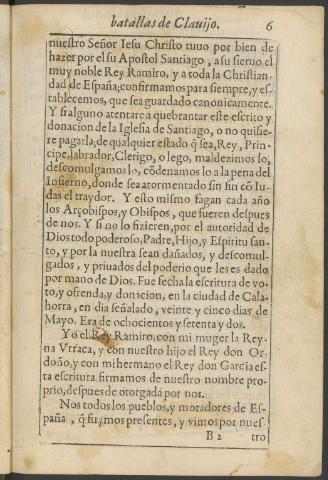 batallas de Clauijo. 6
nuestro Señor Iesu Christo tuuo por bien de
hazer por el su Apostol Santiago, a su sieruo el
muy noble Rey Ramiro, y a toda la Christian-
dad de España; confirmamos para siempre, y es-
tablecemos, que sea guardado canonicamente.
Y si alguno atentare a quebrantar este escrito y
donacion de la Iglesia de Santiago, o no quisie-
re pagarla; de qualquier estado q̃ sea, Rey, Prin-
cipe, labrador, Clerigo, o lego, maldezimos lo,
descomulgamos lo, cõdenamos lo a la pena del
Infierno, donde sea atormentado sin fin cõ Iu-
das el traydor. Y esto mismo fagan cada año
los Arçobispos, y Obispos, que fueren despues
de nos. Y si no lo fizieren, por el autoridad de
Dios todo poderoso, Padre, Hijo, y Espiritu san-
to, y por la nuestra sean dañados, y descomul-
gados, y priuados del poderio que les es dado
por mano de Dios. Fue fecha la escritura de vo-
to, y ofrenda, y donacion, en la ciudad de Cala-
horra, en dia señalado, veinte y cinco dias de
Mayo. Era de ochocientos y setenta y dos.
Yo el Rey Ramiro, con mi muger la Rey-
na Vrraca, y con nuestro hijo el Rey don Or-
doño, y con mi hermano el Rey don Garcia es-
ta escritura firmamos de nuestro nombre pro-
prio, despues de otorgada por nos.
Nos todos los pueblos, y moradores de Es-
paña, q̃ fuimos presentes, y vimos por nues-
B 2 tro